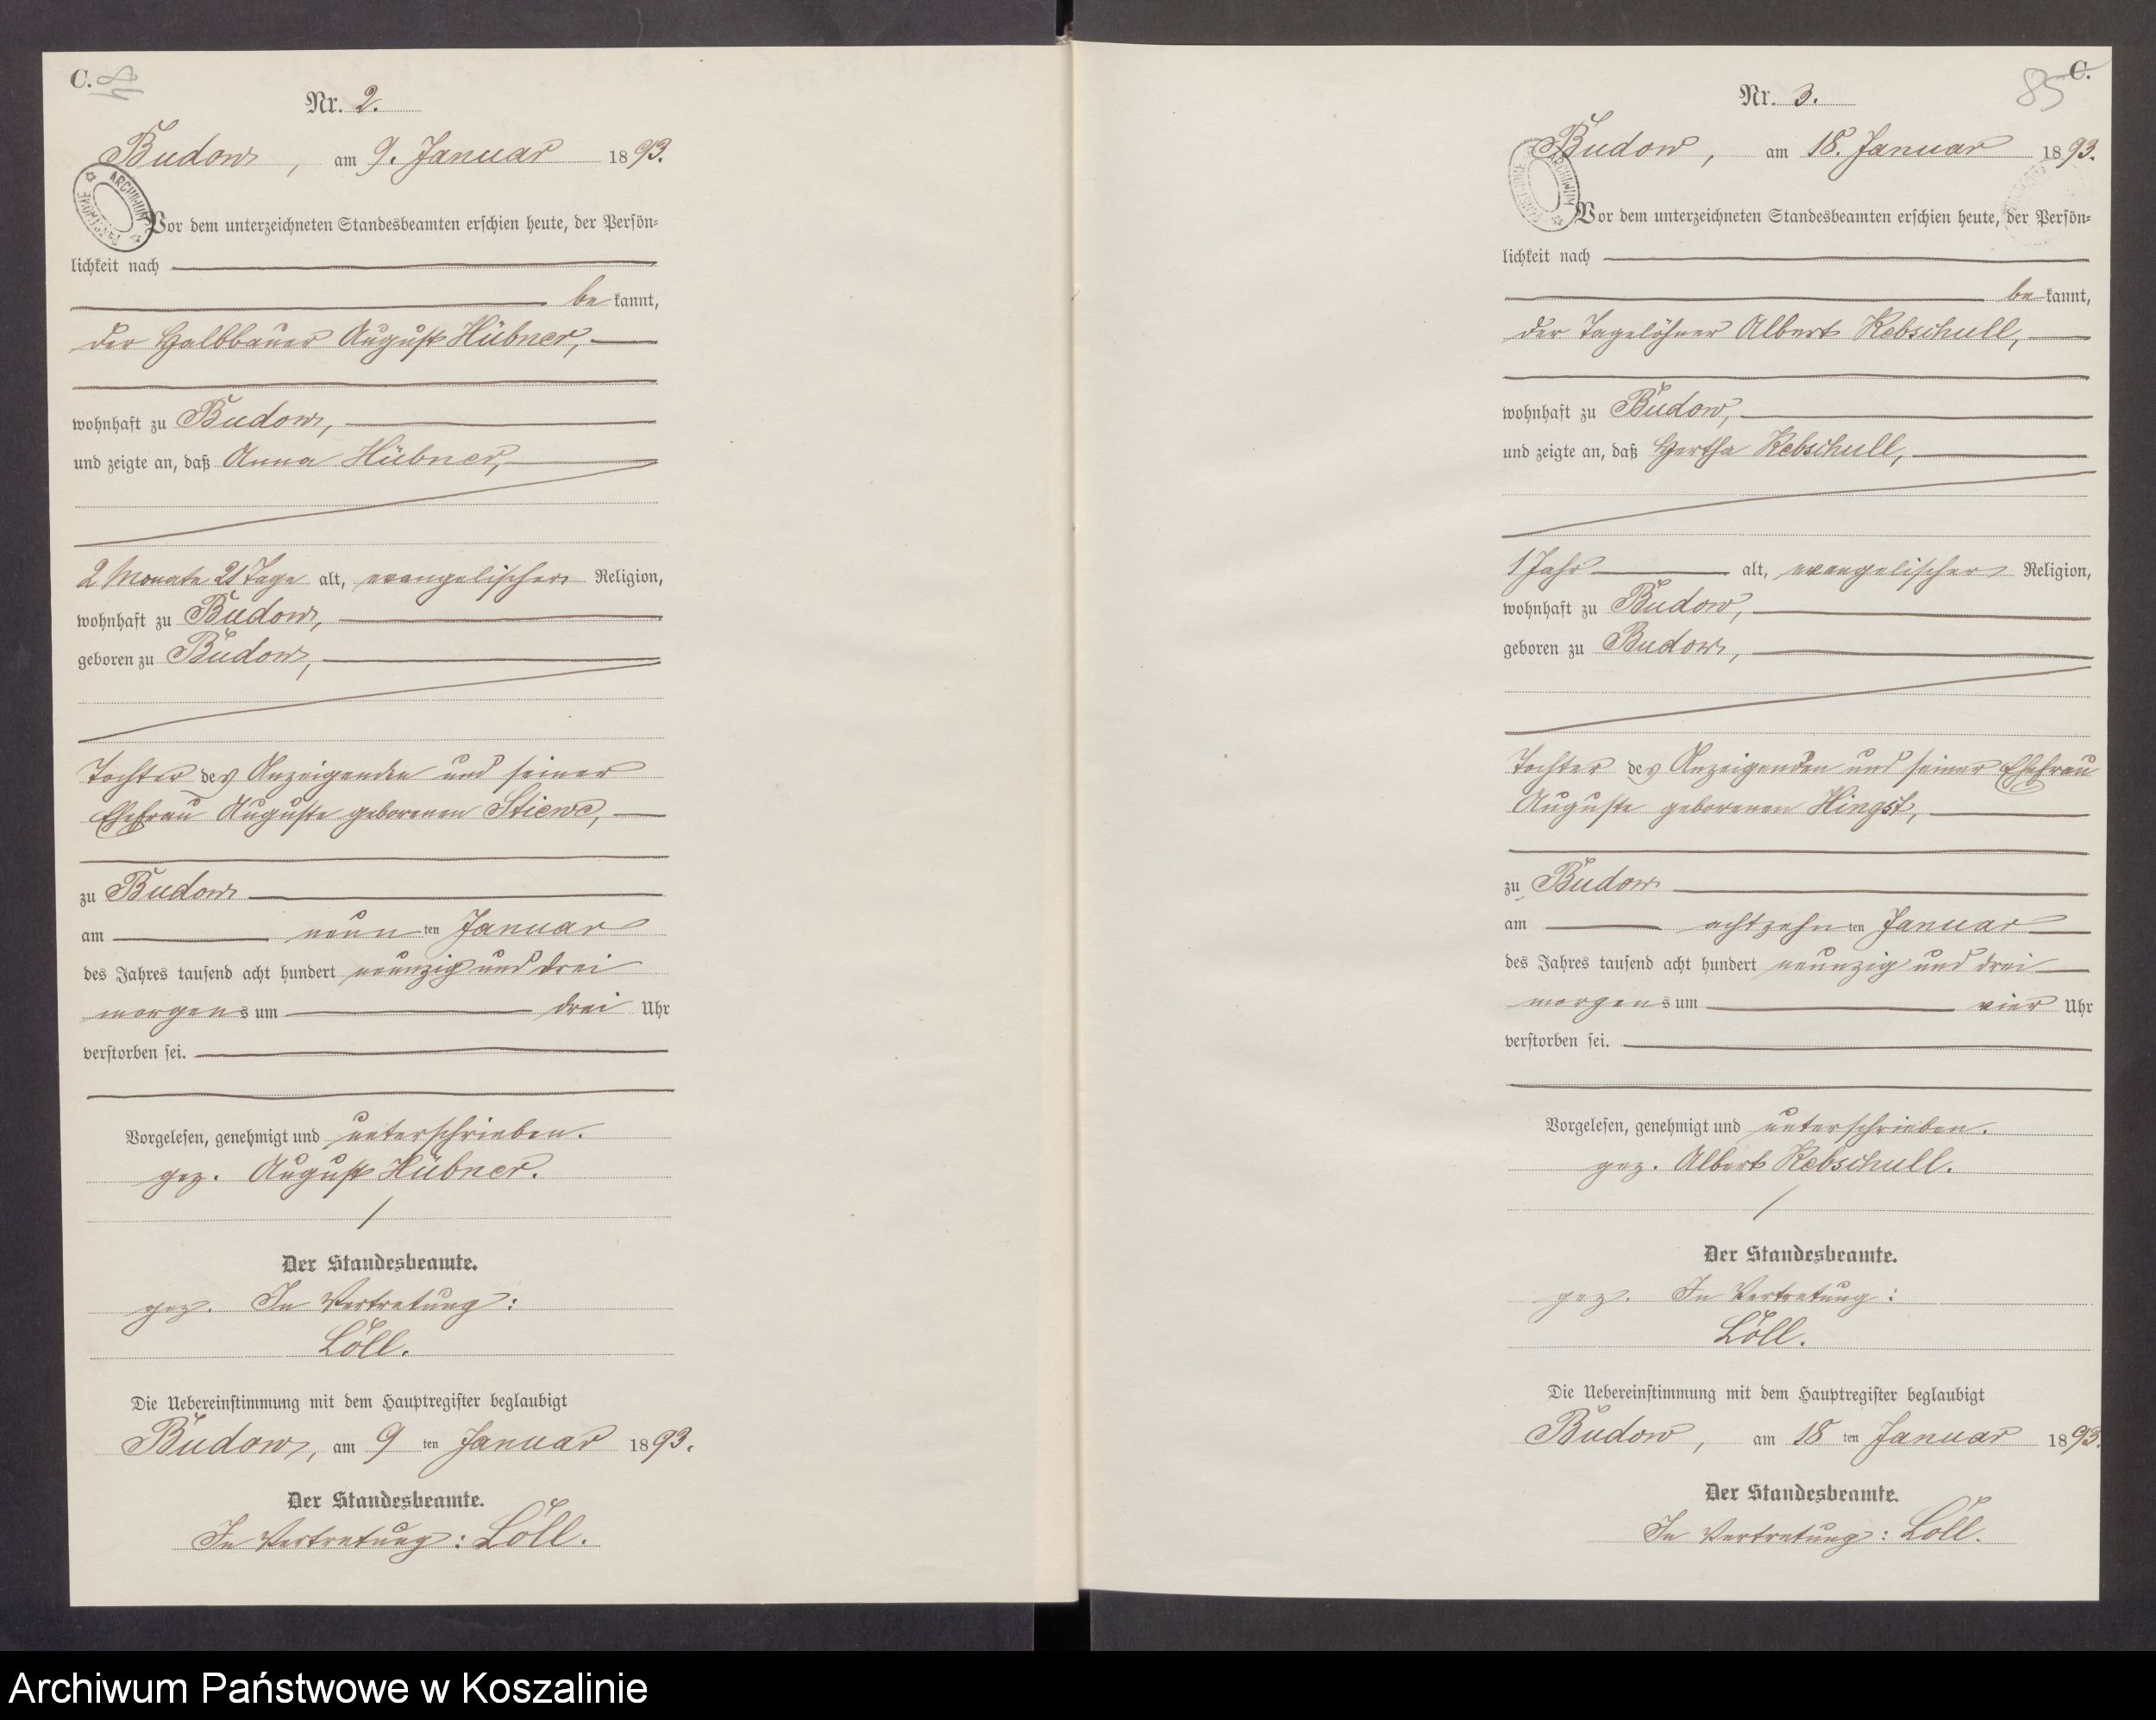 C.
Nr. 2.
Budow, am 9. Januar 1893.
ARCHIWUM PAŃSTWOWE
Vor dem unterzeichneten Standesbeamten erschien heute, der Persön=
lichkeit nach
be kannt,
der Halbbauer August Hübner,
wohnhaft zu Budow,
und zeigte an, daß Anna Hübner,
2 Monate 21 Tage alt, evangelischer Religion,
wohnhaft zu Budow,
geboren zu Budow,
Tochter des Anzeigenden und seiner
Ehefrau Auguste geborenen Stiewe,
zu Budow
am neun ten Januar
des Jahres tausend acht hundert neunzig und drei
morgens um drei Uhr
verstorben sei.
Vorgelesen, genehmigt und unterschrieben.
gez. August Hübner.
Der Standesbeamte.
gez. In Vertretung:
Löll.
Die Uebereinstimmung mit dem Hauptregister beglaubigt
Budow, am 9 ten Januar 1893.
Der Standesbeamte.
In Vertretung: Löll.
C.
85
Nr. 3.
Budow, am 18. Januar 1893.
ARCHIWUM PAŃSTWOWE
Vor dem unterzeichneten Standesbeamten erschien heute, der Persön=
lichkeit nach
be kannt,
der Tagelöhner Albert Kebschull,
wohnhaft zu Budow,
und zeigte an, daß Hertha Kebschull,
1 Jahr alt, evangelischer Religion,
wohnhaft zu Budow,
geboren zu Budow,
Tochter des Anzeigenden und seiner Ehefrau
Auguste geborenen Hingst,
zu Budow
am achtzehn ten Januar
des Jahres tausend acht hundert neunzig und drei
morgens um vier Uhr
verstorben sei.
Vorgelesen, genehmigt und unterschrieben.
gez. Albert Kebschull.
Der Standesbeamte.
gez. In Vertretung:
Löll.
Die Uebereinstimmung mit dem Hauptregister beglaubigt
Budow, am 18 ten Januar 1893.
Der Standesbeamte.
In Vertretung: Löll.
Archiwum Państwowe w Koszalinie